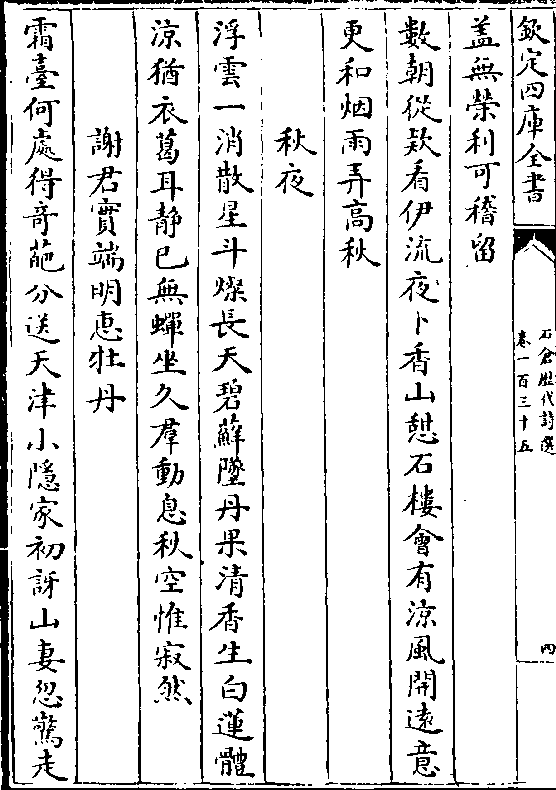 欽定四庫全書
石倉歷代詩選
卷一百三十五
四
盖無榮利可稽留
數朝從欵看伊流夜卜香山憇石樓會有涼風開遠意
更和烟雨弄高秋
秋夜
浮雲一消散星斗燦長天碧蘚墜丹果清香生白蓮體
涼猶衣葛耳静已無蟬坐久羣動息秋空惟寂然
謝君實端明惠牡丹
霜臺何處得竒葩分送天津小隱家初訝山妻忽驚走